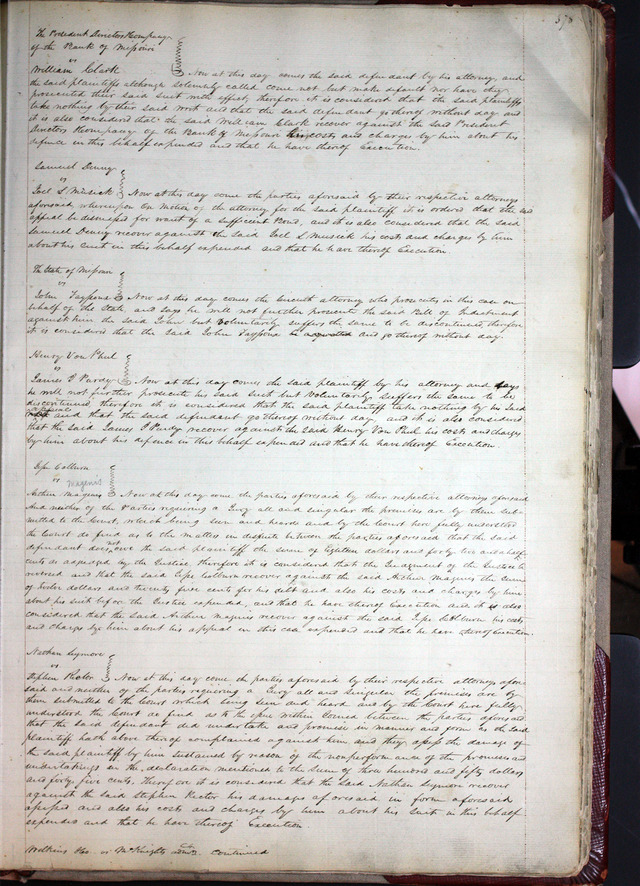 378
The President Directors & Company
of the Bank of Missouri
vs
William Clark Now at this day comes the said defendant by his attorney, and
the said plaintiffs although solemnly called come not but make default nor have they
prosecuted their said Suit with effect, therefore it is considered that the said plaintiffs
take nothing by their said writ and that the said defendant go thereof without day and
it is also considered that the said William Clark recover against the said President
Directors & Company of the Bank of Missouri his costs and charges by him about his
defence in this behalf expended and that he have thereof Execution.
Samuel Denny
vs
Joel S. Musick Now at this day come the parties aforesaid by their respective attorneys
aforesaid, whereupon on motion of the attorney for the said plaintiff it is ordered that the said
appeal be dismissed for want of a sufficient Bond, and it is also considered that the said
Samuel Denny recover against the said Joel S. Musick his costs and charges by him
about his Suit in this behalf expended and that he have thereof Execution.
The State of Missouri
vs
John Now at this day comes the Circuit attorney who prosecutes in this case on
behalf of the State, and says he will not further prosecute the said Bill of Indictment
against him the said John but voluntarily suffers the same to be discontinued, therefore
it is considered that the Said John be acquitted and go thereof without day.
Henry Von Phul
vs
James P Purdy Now at this day comes the said plaintiff by his attorney and says
he will not further prosecute his said Suit but voluntarily suffers the same to be
discontinued, therefore it is considered that the said plaintiff take nothing by his said
appeal and that the said defendant go thereof without day and it is also considered
that the said James P Purdy recover against the said Henry Von Phul his costs and charges
by him about his defence in this behalf expended and that he have thereof Execution.
Colburn
vs Magenis
Arthur Magenis Now at this day come the parties aforesaid by their respective attorneys aforesaid
And neither of the Parties requiring a Jury all and singular the premises are by them sub-
mitted to the Court, which being seen and heard and by the Court here fully understood
the Court do find as to the matters in dispute between the parties aforesaid that the said
defendant does not owe the said plaintiff the sum of Eighteen dollars and forty five and a half
cents as adjudged by the Justice, therefore it is considered that the Judgment of the Justice be
reversed and that the said Colburn recover against the said Arthur Magenis the sum
of twelve dollars and twenty five cents for his debt and also his costs and charges by him
about his suit before the Justice expended, and that he have thereof Execution and it is also
considered that the said Arthur Magenis recover against the said Colburn his costs
and charges by him about his appeal in this case expended and that he have thereof Execution.
Nathan Seymore
vs
Stephen Rector Now at this day come the parties aforesaid by their respective attorneys afore-
said and neither of the parties requiring a Jury all and singular the premises are by
them submitted to the Court which being seen and heard and by the Court here fully
understood the Court do find as to the issue within Joined between the parties aforesaid
that the said defendant did undertake and promise in manner and form as the said
plaintiff hath above thereof complained against him and they assess the damage of
the said plaintiff by him sustained by reason of the nonperformance of the promises and
undertakings in the declaration mentioned to the Sum of three hundred and fifty dollars
and forty five cents. Therefore it is considered that the said Nathan Seymour recover
against the said Stephen Rector his damages aforesaid in form aforesaid
assessed and also his costs and charges by him about his Suit in this behalf
expended and that he have thereof Execution.
vs McKnights admrs. Continued